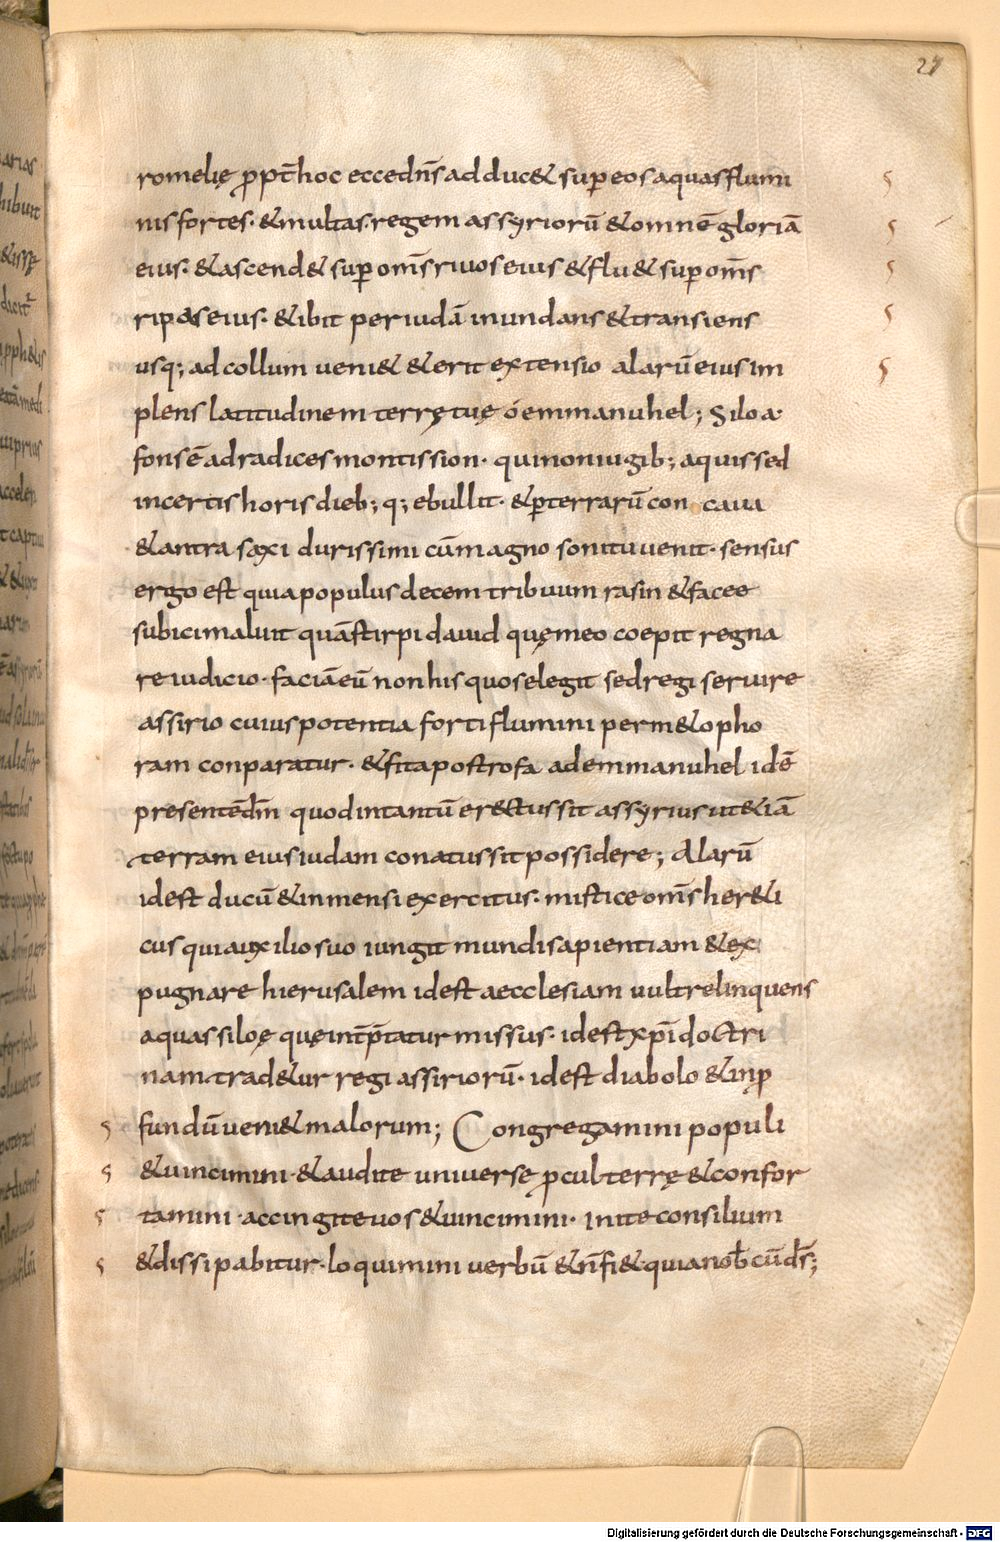 27
romelię ꝓpt̄ hoc ecce dn̄s adduc& suꝑ eos aquas flumi
nis fortes· & multas· regem assyriorū & omnē gloriā
eius· & ascend& suꝑ om̄s riuos eius & flu& suꝑ om̄s
ripas eius· & ibit per iudā inundans & transiens
usq; ad collum ueni& & erit extensio alarū eius im
plens latitudinem terrę tuę ó emmanuhel; Siloa·
fons ē ad radices montis sion· qui non iugib; aquis sed
incertis horis dieb;q; ebullit· & ꝑ terrarū con caua
& antra saxi durissimi cū magno sonitu uenit· sensus
ergo est quia populus decem tribuum rasin & facee
subici maluit quā stirpi dauid quę meo coepit regna
re iudicio· faciā eū non his quos elegit sed regi seruire
assirio cuius potentia forti flumini per m&apho
ram conparatur· & fit apostrofa ad emmanuhel idē
presentē dm̄ quod intantū erectus sit assyrius ut &iā
terram eius iudam conatus sit possidere; Alarū
id est ducū & inmensi exercitus· mistice om̄s her&i
cus qui auxilio suo iungit mundi sapientiam & ex
pugnare hierusalem id est aecclesiam uult relinquens
aquas siloę quę int̄p̄tatur missus· id est xp̄i doctri
nam trad&ur regi assiriorū· id est diabolo & in ꝓ
fundū ueni& malorum; Congregamini populi
& uincimini· & audite universe ꝓcul terrę & confor
tamini· accingite uos & uincimini· inite consilium
& dissipabitur· loquimini uerbū & n̄ fi& quia nob̄ cū ds̄;
Digitalisierung gefördert durch die Deutsche Forschungsgemeinschaft - DFG